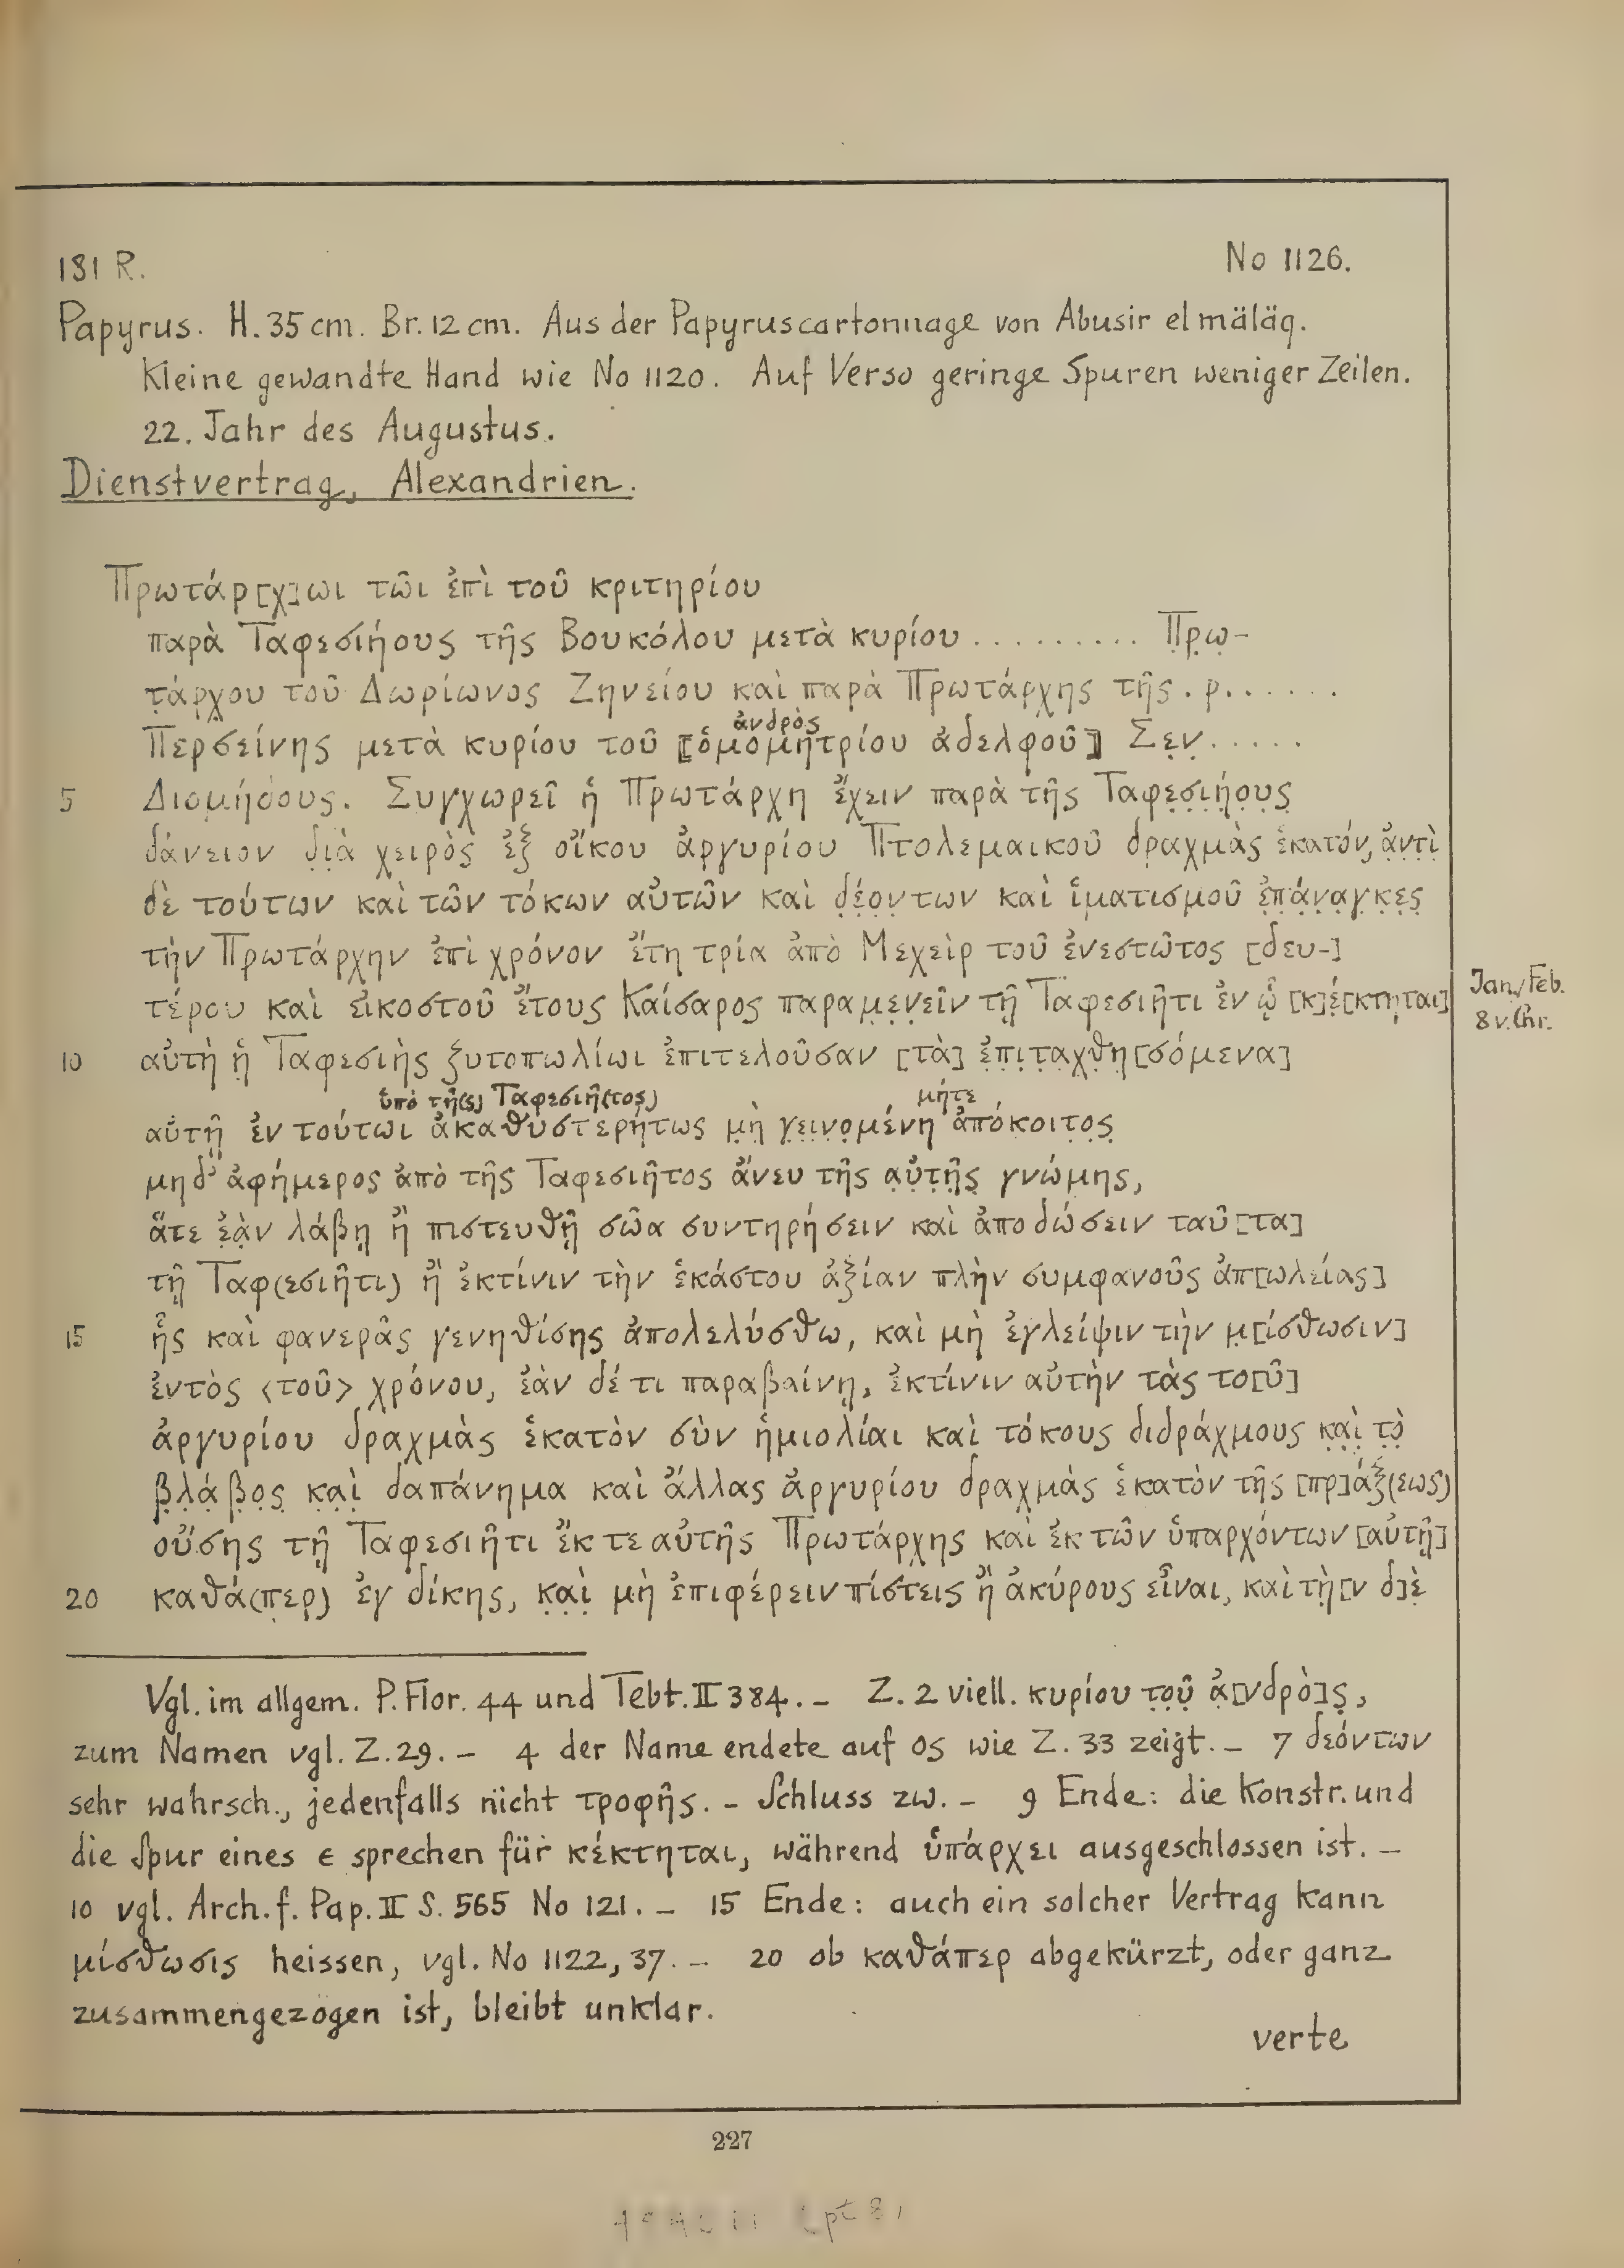 181 R.
No 1126.
Papyrus. H. 35 cm. Br. 12 cm. Aus der Papyruscartonnage von Abusir el mäläq.
Kleine gewandte Hand wie No 1120. Auf Verso geringe Spuren weniger Zeilen.
22. Jahr des Augustus.
Dienstvertrag, Alexandrien.
Πρωτάρ[χ]ωι τῶι ἐπὶ τοῦ κριτηρίου
παρὰ Ταφεσιήους τῆς Βουκόλου μετὰ κυρίου ......... Π̣ρ̣ω̣-
τ̣άρχου τοῦ Δωρίωνος Ζηνείου καὶ παρὰ Πρωτάρχης τῆς . ρ.......
ἀνδρὸς
Περσείνης μετὰ κυρίου τοῦ ⟦ὁμομητρίου ἀδελφοῦ⟧ Σε̣ν̣.....
5 Διομήδους. Συγχωρεῖ ἡ Πρωτάρχη ἔχειν παρὰ τῆς Ταφε̣σ̣ι̣ή̣ο̣υ̣ς̣
δάνειον δ̣ι̣ὰ χειρὸς ἐξ οἴκου ἀργυρίου Πτολεμαικοῦ δραχμὰς ἑκατόν, ἀ̣ν̣τ̣ὶ̣
δὲ τούτων καὶ τῶν τόκων αὐτῶν καὶ δ̣έ̣ο̣ν̣των καὶ ἱματισμοῦ ἐ̣π̣ά̣ν̣α̣γ̣κ̣ε̣ς̣
τὴν Πρωτάρχην ἐπὶ χρόνον ἔτη τρία ἀπὸ Μεχεὶρ τοῦ ἐνεστῶτος [δευ-]
τέρου καὶ εἰκοστοῦ ἔτους Καίσαρος παραμ̣ε̣ν̣εῖν τῇ Ταφεσιῆτι ἐν ᾧ̣ [κ]έ̣[κτηται]
Jan./Feb.
8 v. Chr.
10 αὐτὴ ἡ̣ Ταφεσιὴς ζυτοπωλίωι ἐπιτελοῦσαν [τὰ] ἐ̣π̣ι̣τ̣α̣χ̣θ̣η̣[σόμενα]
ὑπὸ τῆ(ς) Ταφεσιῆ(τος) μήτε
αὐτῇ ἐν τούτωι ἀκαθυστερήτως μ̣ὴ̣ γ̣ε̣ι̣ν̣ο̣μένη ἀπόκοιτ̣ο̣ς̣
μηδ' ἀφήμερος ἀπὸ τῆς Ταφεσιῆτος ἄνευ τῆς α̣ὐ̣τ̣ῆ̣ς̣ γνώμης,
ἅτε ἐ̣ὰ̣ν λάβῃ ἢ πιστευθῇ σῶα συντηρήσειν καὶ ἀποδώσειν ταῦ[τα]
τῇ Ταφ(εσιῆτι) ἢ ἐκτίνιν τὴν ἑκάστου ἀξίαν πλὴν συμφανοῦς ἀπ[ωλείας]
15 ἧς καὶ φανερᾶς γενηθίσης ἀπολελύσθω, καὶ μὴ ἐγλείψιν τὴν μ̣[ίσθωσιν]
ἐντὸς <τοῦ> χρόνου, ἐὰν δέ τι παραβαίνῃ, ἐκτίνιν αὐτὴν τάς το[ῦ]
ἀργυρίου δραχμὰς ἑκατὸν σὺν ἡμιολίαι καὶ τόκους διδράχμους κ̣α̣ὶ̣ τ̣ὸ̣
β̣λ̣ά̣β̣ο̣ς̣ κ̣α̣ὶ̣ δαπάνημα καὶ ἄλλας ἀργυρίου δραχμὰς ἑκατὸν τῆς [πρ]άξ(εως)
οὔσης τῇ Ταφεσιῆτι ἔκ τε αὐτῆς Πρωτάρχης καὶ ἐκ τῶν ὑπαρχόντων [αὐτῇ]
20 καθά(περ) ἐγ δίκης, κ̣α̣ὶ̣ μὴ ἐπιφέρειν πίστεις ἢ ἀκύρους εἶναι, καὶ τὴ̣[ν δ]ὲ̣
Vgl. im allgem. P. Flor. 44 und Tebt. II 384. – Z. 2 viell. κυρίου τ̣ο̣ῦ̣ ἀ̣[νδρὸ]ς̣,
zum Namen vgl. Z. 29. – 4 der Name endete auf os wie Z. 33 zeigt. – 7 δεόντων
sehr wahrsch., jedenfalls nicht τροφῆς. – Schluss zw. – 9 Ende: die Konstr. und
die Spur eines ε sprechen für κέκτηται, während ὑπάρχει ausgeschlossen ist. –
10 vgl. Arch. f. Pap. II S. 565 No 121. – 15 Ende: auch ein solcher Vertrag kann
μίσθωσις heissen, vgl. No 1122, 37. – 20 ob καθάπερ abgekürzt, oder ganz
zusammengezogen ist, bleibt unklar.
verte
227